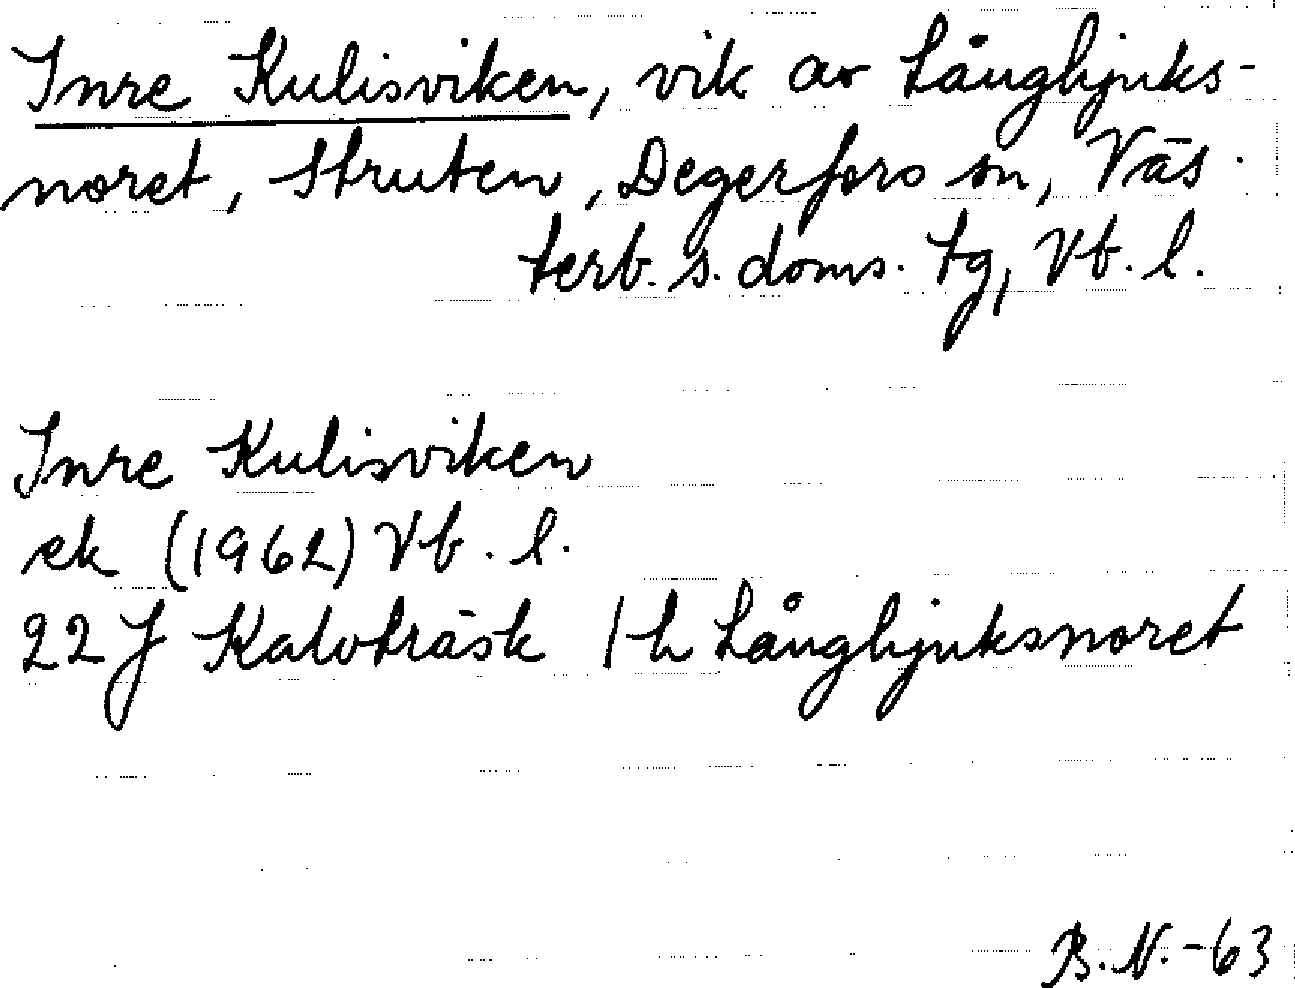 Inre Kulisviken, vik av Långhjuks-
noret, Struten, Degerfors sn, Väs-
terb. s. doms. tg, Vb. l.
Inre Kulisviken
ek (1962) Vb. l.
22 J Kalvträsk 1 h Långhjuksnoret
B. N. - 63